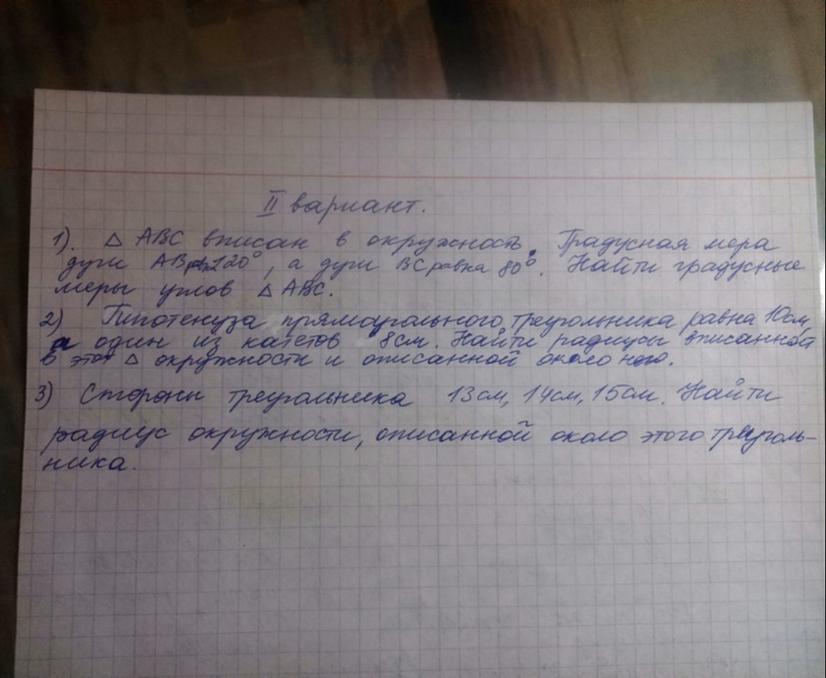 II вариант.
1). △ ABC вписан в окружность. Градусная мера
дуги AB 120°, а дуги BC равна 80°. Найти градусные
меры углов △ ABC.
2) Гипотенуза прямоугольного треугольника равна 10см,
а один из катетов 8см. Найти радиусы вписанной
в этот △ окружности и описанной около него.
3) Стороны треугольника 13см, 14см, 15см. Найти
радиус окружности, описанной около этого треуголь-
ника.